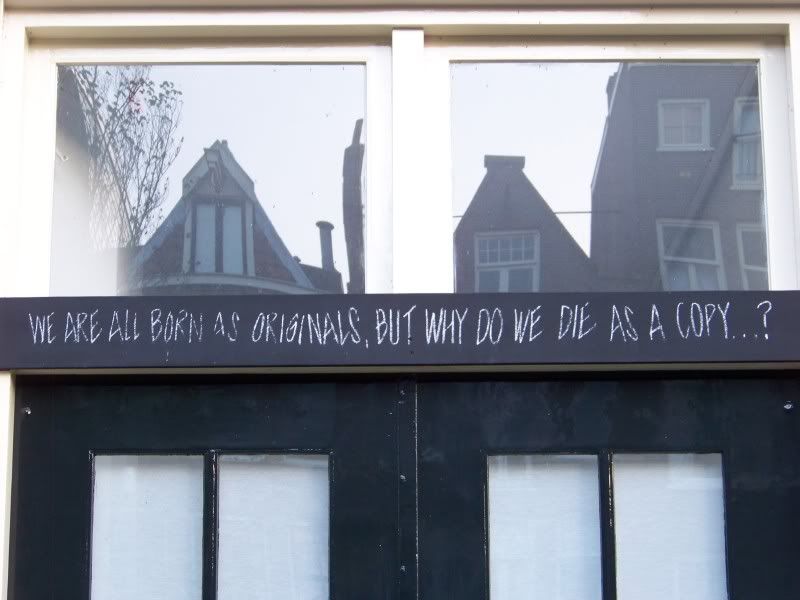 WE ARE ALL BORN AS ORIGINALS, BUT WHY DO WE DIE AS A COPY...?